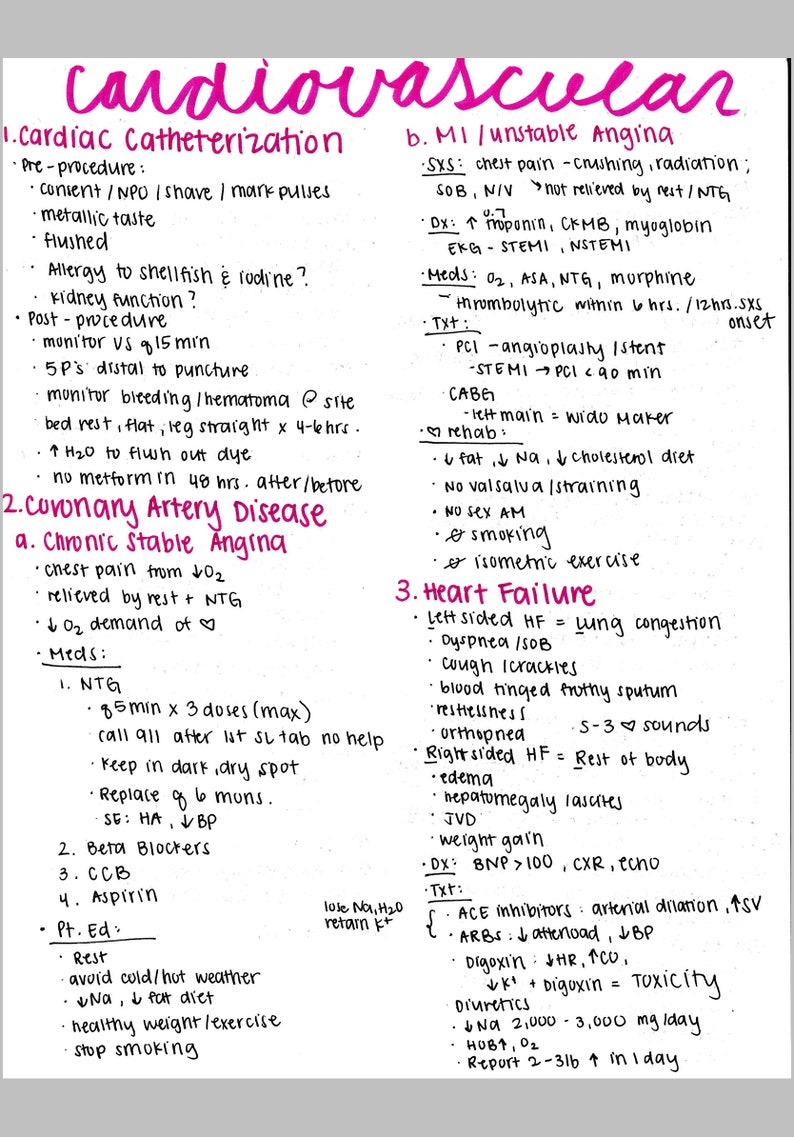 cardiovascular
1. Cardiac Catheterization
· Pre-procedure:
· consent / NPO / shave / mark pulses
· metallic taste
· flushed
· Allergy to shellfish & iodine?
· kidney function?
· Post-procedure
· monitor VS q 15 min
· 5 P's distal to puncture
· monitor bleeding / hematoma @ site
bed rest, flat, leg straight x 4-6 hrs.
· ↑ H2O to flush out dye
· no metformin 48 hrs. after/before
2. Coronary Artery Disease
a. Chronic Stable Angina
· chest pain from ↓O2
· relieved by rest + NTG
· ↓ O2 demand of ♡
· Meds:
1. NTG
· q 5 min x 3 doses (max)
call 911 after 1st SL tab no help
· Keep in dark, dry spot
· Replace q 6 mons.
· SE: HA, ↓BP
2. Beta Blockers
3. CCB
4. Aspirin
· Pt. Ed:
· Rest
· avoid cold/hot weather
· ↓Na, ↓ fat diet
· healthy weight/exercise
· stop smoking
b. MI / unstable Angina
· SXS: chest pain - crushing, radiation;
SOB, N/V → not relieved by rest / NTG
· Dx: ↑ troponin, CKMB, myoglobin
0.7
EKG - STEMI, NSTEMI
· Meds: O2, ASA, NTG, morphine
- thrombolytic within 6 hrs. / 12 hrs. sxs
onset
· Txt:
· PCI - angioplasty / stent
- STEMI → PCI < 90 min
· CABG
- left main = Wido Maker
· ♡ rehab:
· ↓ fat, ↓ Na, ↓ cholesterol diet
· No valsalva / straining
· NO sex AM
· ∅ smoking
· ∅ isometric exercise
3. Heart Failure
· Left sided HF = Lung congestion
· Dyspnea / SOB
· cough / crackles
· blood tinged frothy sputum
· restlessness
· orthopnea
· S-3 ♡ sounds
· Right sided HF = Rest of body
· edema
· hepatomegaly / ascites
· JVD
· weight gain
· DX: BNP > 100, CXR, echo
· Txt:
lose Na, H2O
retain K+
{ · ACE inhibitors: arterial dilation, ↑SV
· ARBs: ↓ afterload, ↓ BP
· Digoxin: ↓HR, ↑CO,
↓K+ + Digoxin = TOXICITY
Diuretics
· ↓Na 2,000 - 3,000 mg/day
· HOB↑, O2
· Report 2-3lb ↑ in 1 day